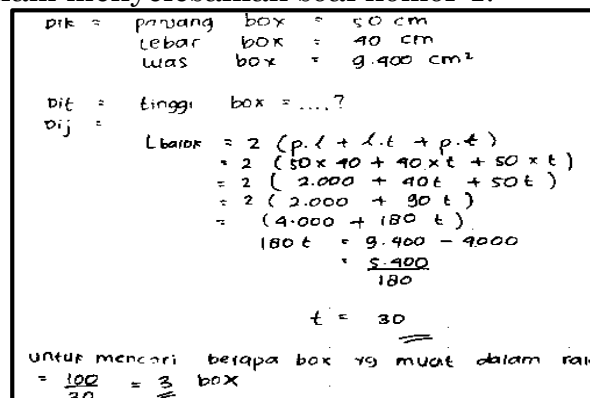 Dik = panjang box = 50 cm
Lebar box = 40 cm
Luas box = 9.400 cm²
Dit = tinggi box = ....?
Dij =
L balok = 2 (p.l + l.t + p.t)
= 2 (50 x 40 + 40 x t + 50 x t)
= 2 ( 2.000 + 40t + 50t )
= 2 ( 2.000 + 90 t )
= (4.000 + 180 t)
180 t = 9.400 - 4000
= 5.400
180
t = 30
untuk mencari berapa box yg muat dalam
= 100 = 3 box
30